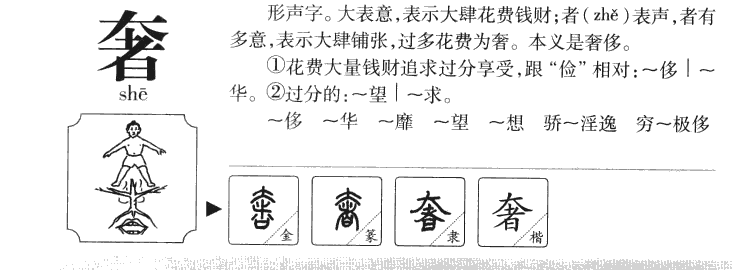 奢
shē
形声字。大表意，表示大肆花费钱财；者（zhě）表声，者有
多意，表示大肆铺张，过多花费为奢。本义是奢侈。
①花费大量钱财追求过分享受，跟“俭”相对：～侈｜～
华。②过分的：～望｜～求。
～侈　～华　～靡　～望　～想　骄～淫逸　穷～极侈
金　篆　隶　楷
奢　奢